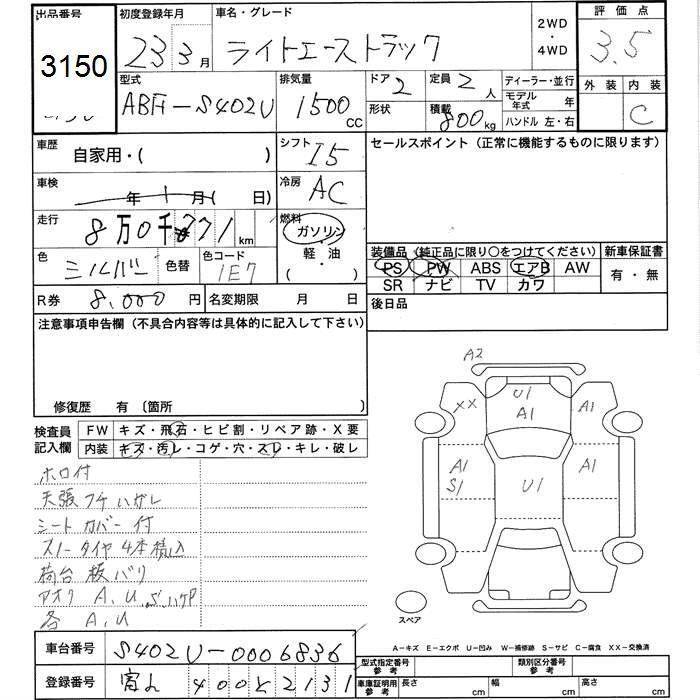 出品番号
3150
初度登録年月
23 3月
車名・グレード
ライトエーストラック
2WD
・
4WD
評価点
3.5
外装 内装
C
型式
ABF-S402U
排気量
1500 CC
ドア 2
形状
定員 2 人
積載 800 kg
ディーラー・並行
モデル年式 年
ハンドル 左・右
車歴
自家用・( )
シフト I5
セールスポイント (正常に機能するものに限ります)
車検
年 1 月( 日)
冷房 AC
走行
8万0千771 km
燃料
ガソリン
・
軽・油
( )
色
シルバー
色替
色コード
1E7
装備品 (純正品に限り○をつけてください)
新車保証書
PS PW ABS エアB AW
SR ナビ TV カワ
有・無
R券 8,000 円
名変期限 月 日
後日品
注意事項申告欄 (不具合内容等は具体的に記入して下さい)
修復歴 有 〔箇所 〕
検査員
記入欄
FW キズ・飛石・ヒビ割・リペア跡・X要
内装 キズ・汚レ・コゲ・穴・スレ・キレ・破レ
ホロ付
天張フチハガレ
シートカバー付
スノータイヤ4本積込
荷台板バリ
アオリ A,U
各 A,U
A2
XX
U1
A1
A1
A1
S1
U1
A1
スペア
A－キズ E－エクボ U－凹み W－補修跡 S－サビ C－腐食 XX－交換済
車台番号 S402U-0006836
登録番号 400 と 2131
型式指定番号
参考
類別区分番号
参考
車庫証明用
参考
長さ cm
幅 cm
高さ cm